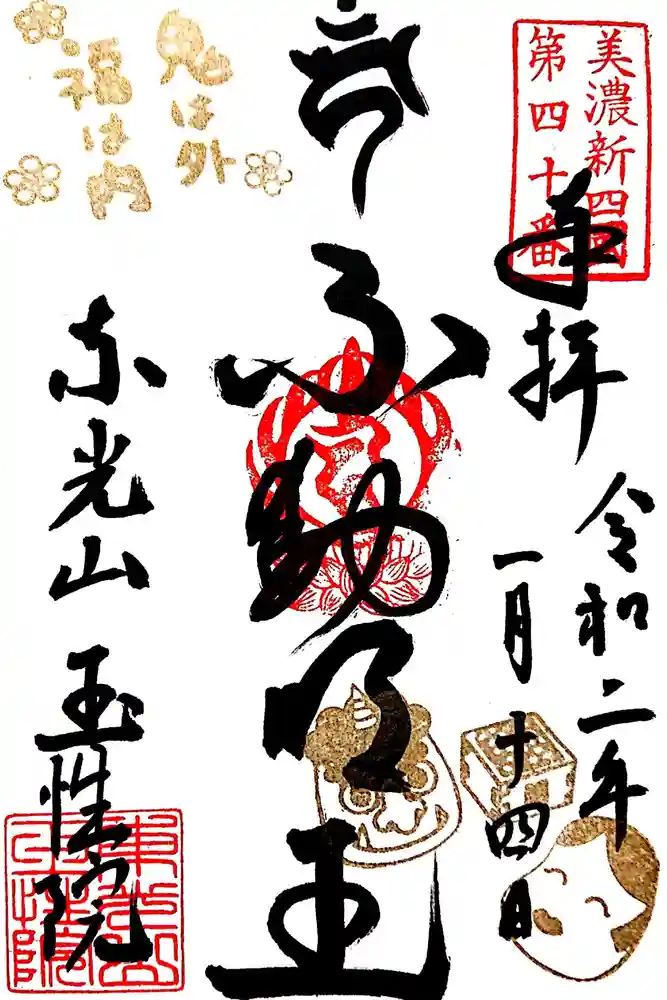 美濃新四國
第四十番
奉拝
令和二年
一月十四日
不動明王
鬼は外
福は内
東光山
玉性院